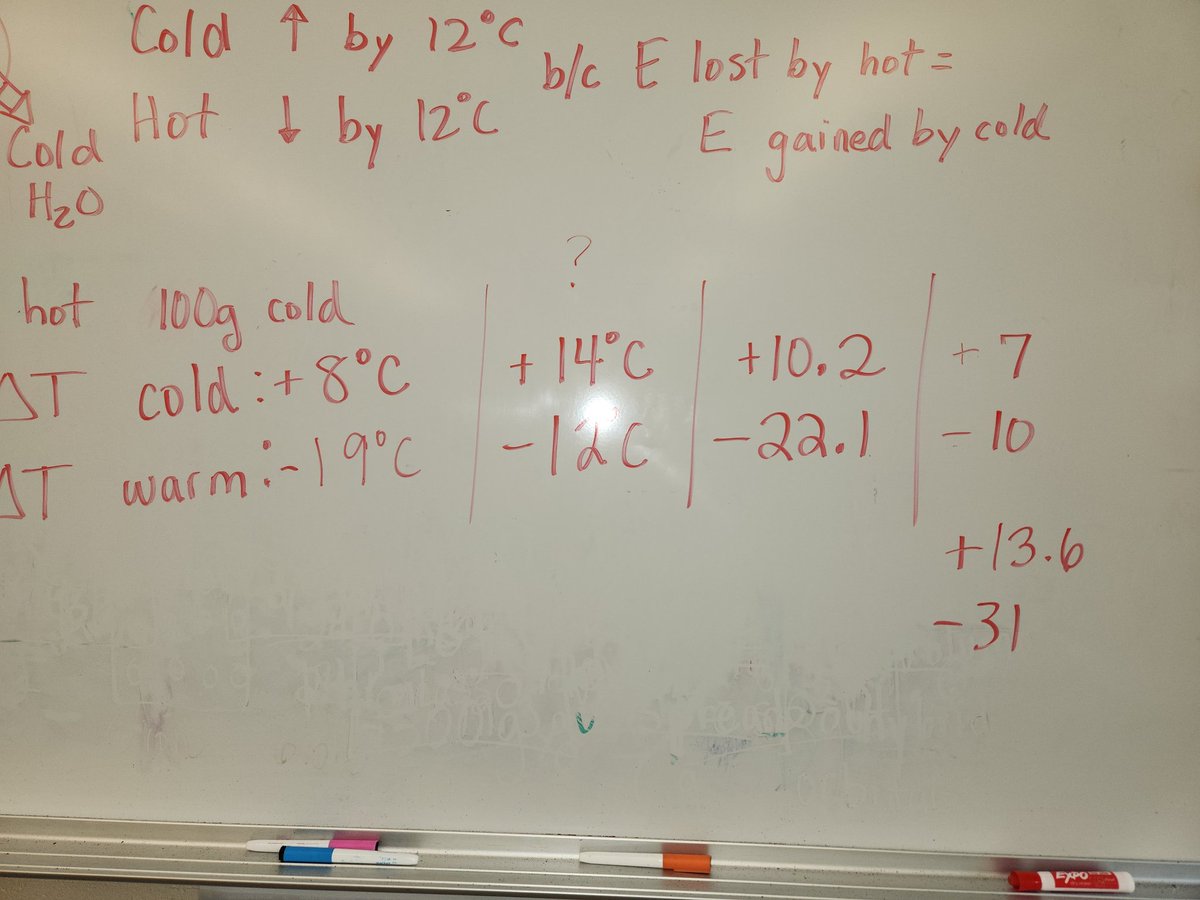 Cold ↑ by 12°C
Hot ↓ by 12°C
b/c E lost by hot =
E gained by cold
Cold
H₂O
?
hot 100g cold
ΔT cold: +8°C | +14°C | +10.2 | +7
ΔT warm: -19°C | -12°C | -22.1 | -10
+13.6
-31
EXPO